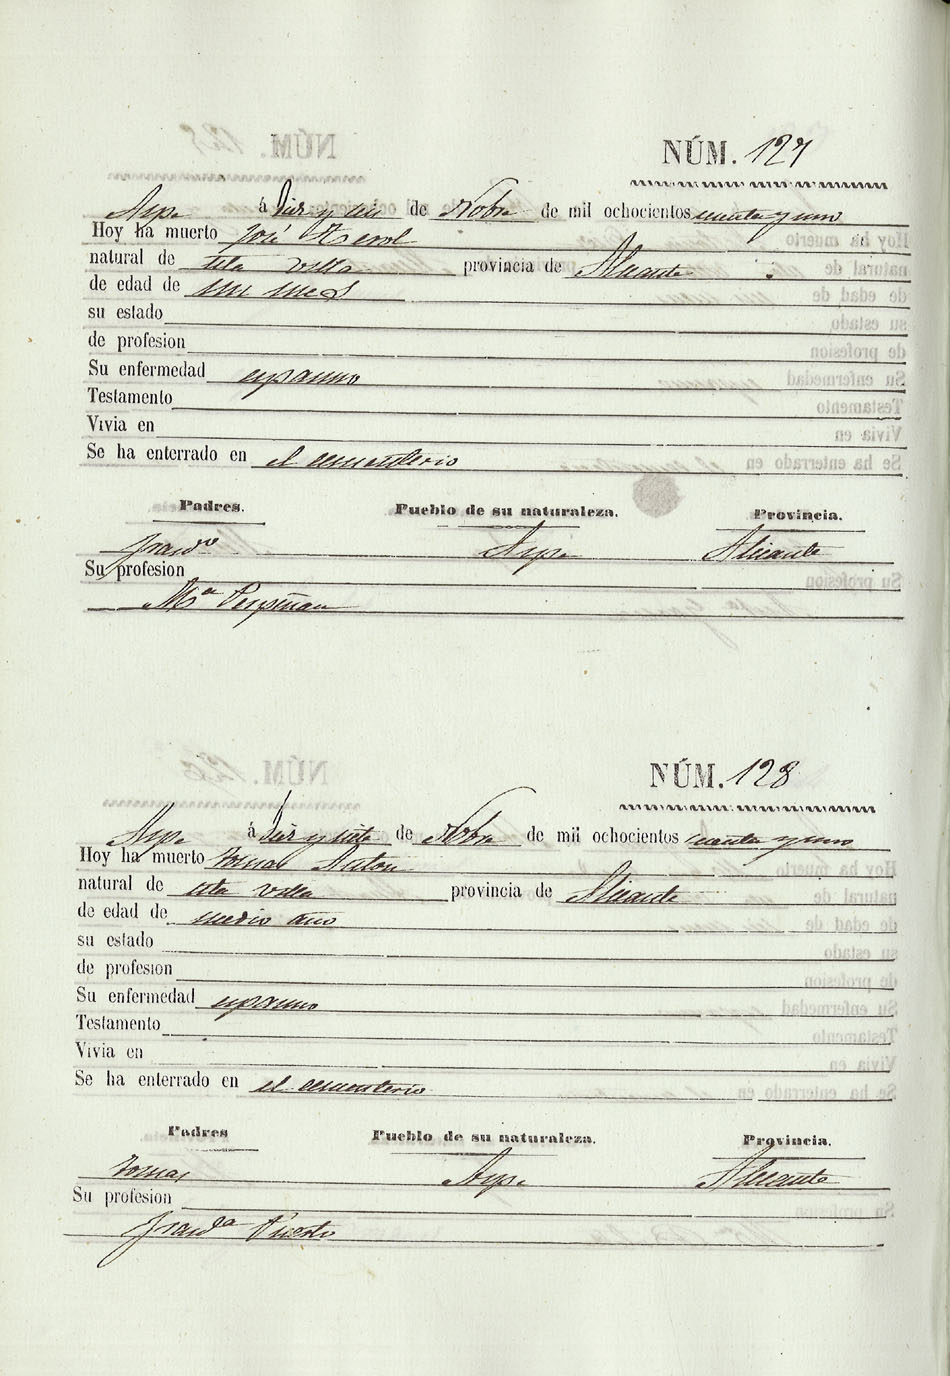 NÚM. 127
Aspe á Diez y seis de Nobre de mil ochocientos y uno
Hoy ha muerto José
natural de esta villa provincia de Alicante
de edad de un mes
su estado
de profesion
Su enfermedad espasmo
Testamento
Vivia en
Se ha enterrado en el cementerio
Padres. Pueblo de su naturaleza. Provincia.
Franco Aspe Alicante
Su profesion
Mª Perpiñan
NÚM. 128
Aspe á Diez y siete de Nobre de mil ochocientos y uno
Hoy ha muerto Tomas Anton
natural de esta villa provincia de Alicante
de edad de medio año
su estado
de profesion
Su enfermedad espasmo
Testamento
Vivia en
Se ha enterrado en el cementerio
Padres Pueblo de su naturaleza. Provincia.
Tomas Aspe Alicante
Su profesion
Franca Puerto